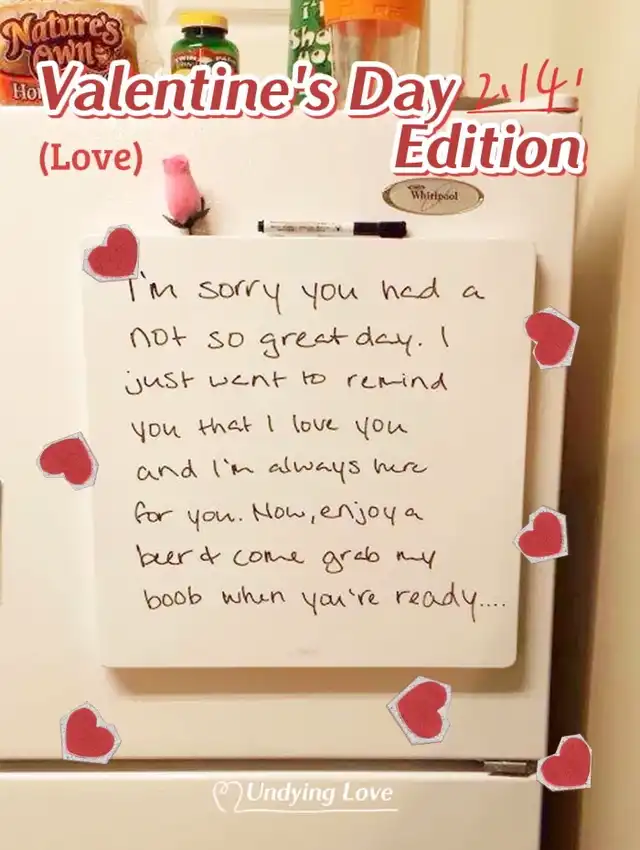 Nature's
Own
TWIN
Valentine's Day 2.14'
(Love)
Edition
Whirlpool
I'm sorry you had a
not so great day. I
just want to remind
you that I love you
and I'm always here
for you. Now, enjoy a
beer & come grab my
boob when you're ready....
Undying Love